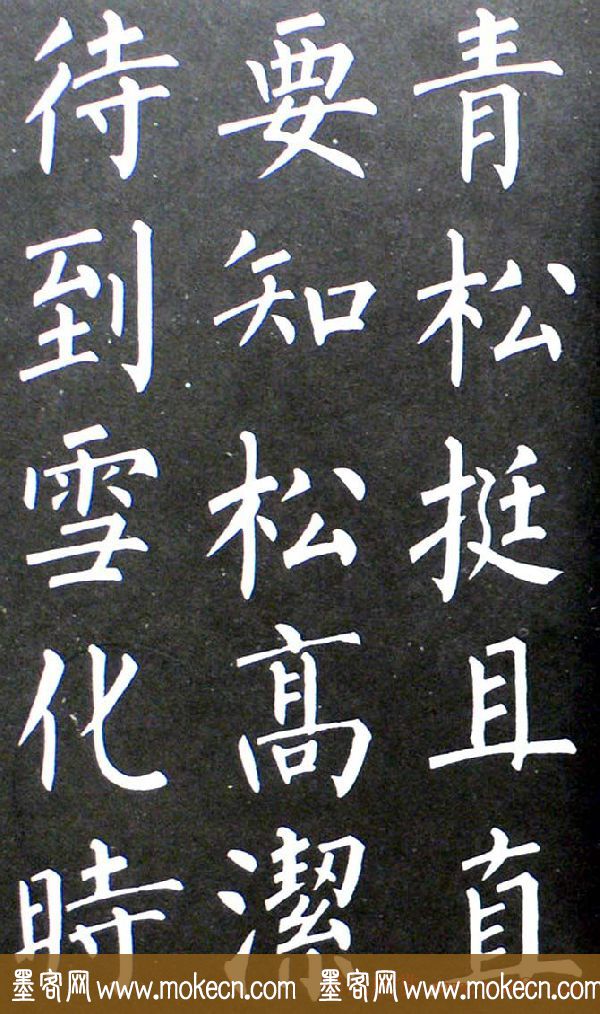 青松挺且直
要知松高潔
待到雪化時
墨客网 www.mokecn.com 墨客网 www.mokecn.com